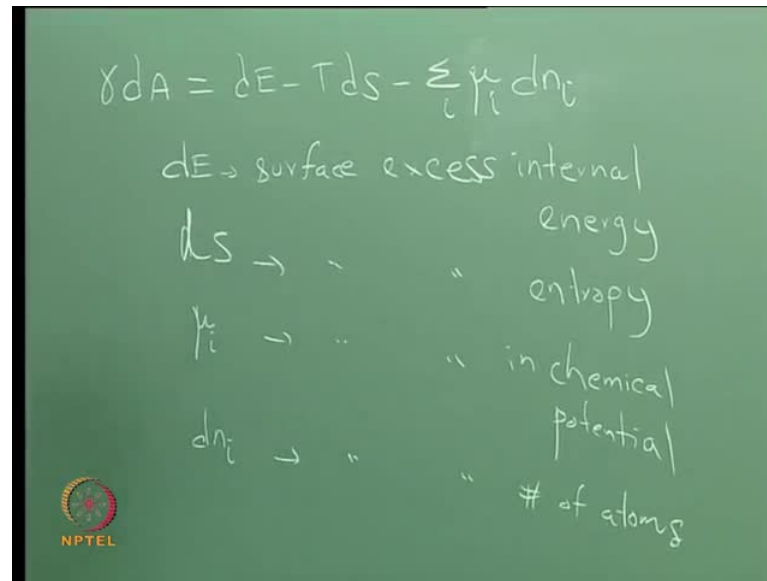 γdA = dE - Tds - Σ_i μ_i dn_i
dE → surface excess internal energy
ds → " " entropy
μ_i → " " in chemical potential
dn_i → " " # of atoms
NPTEL